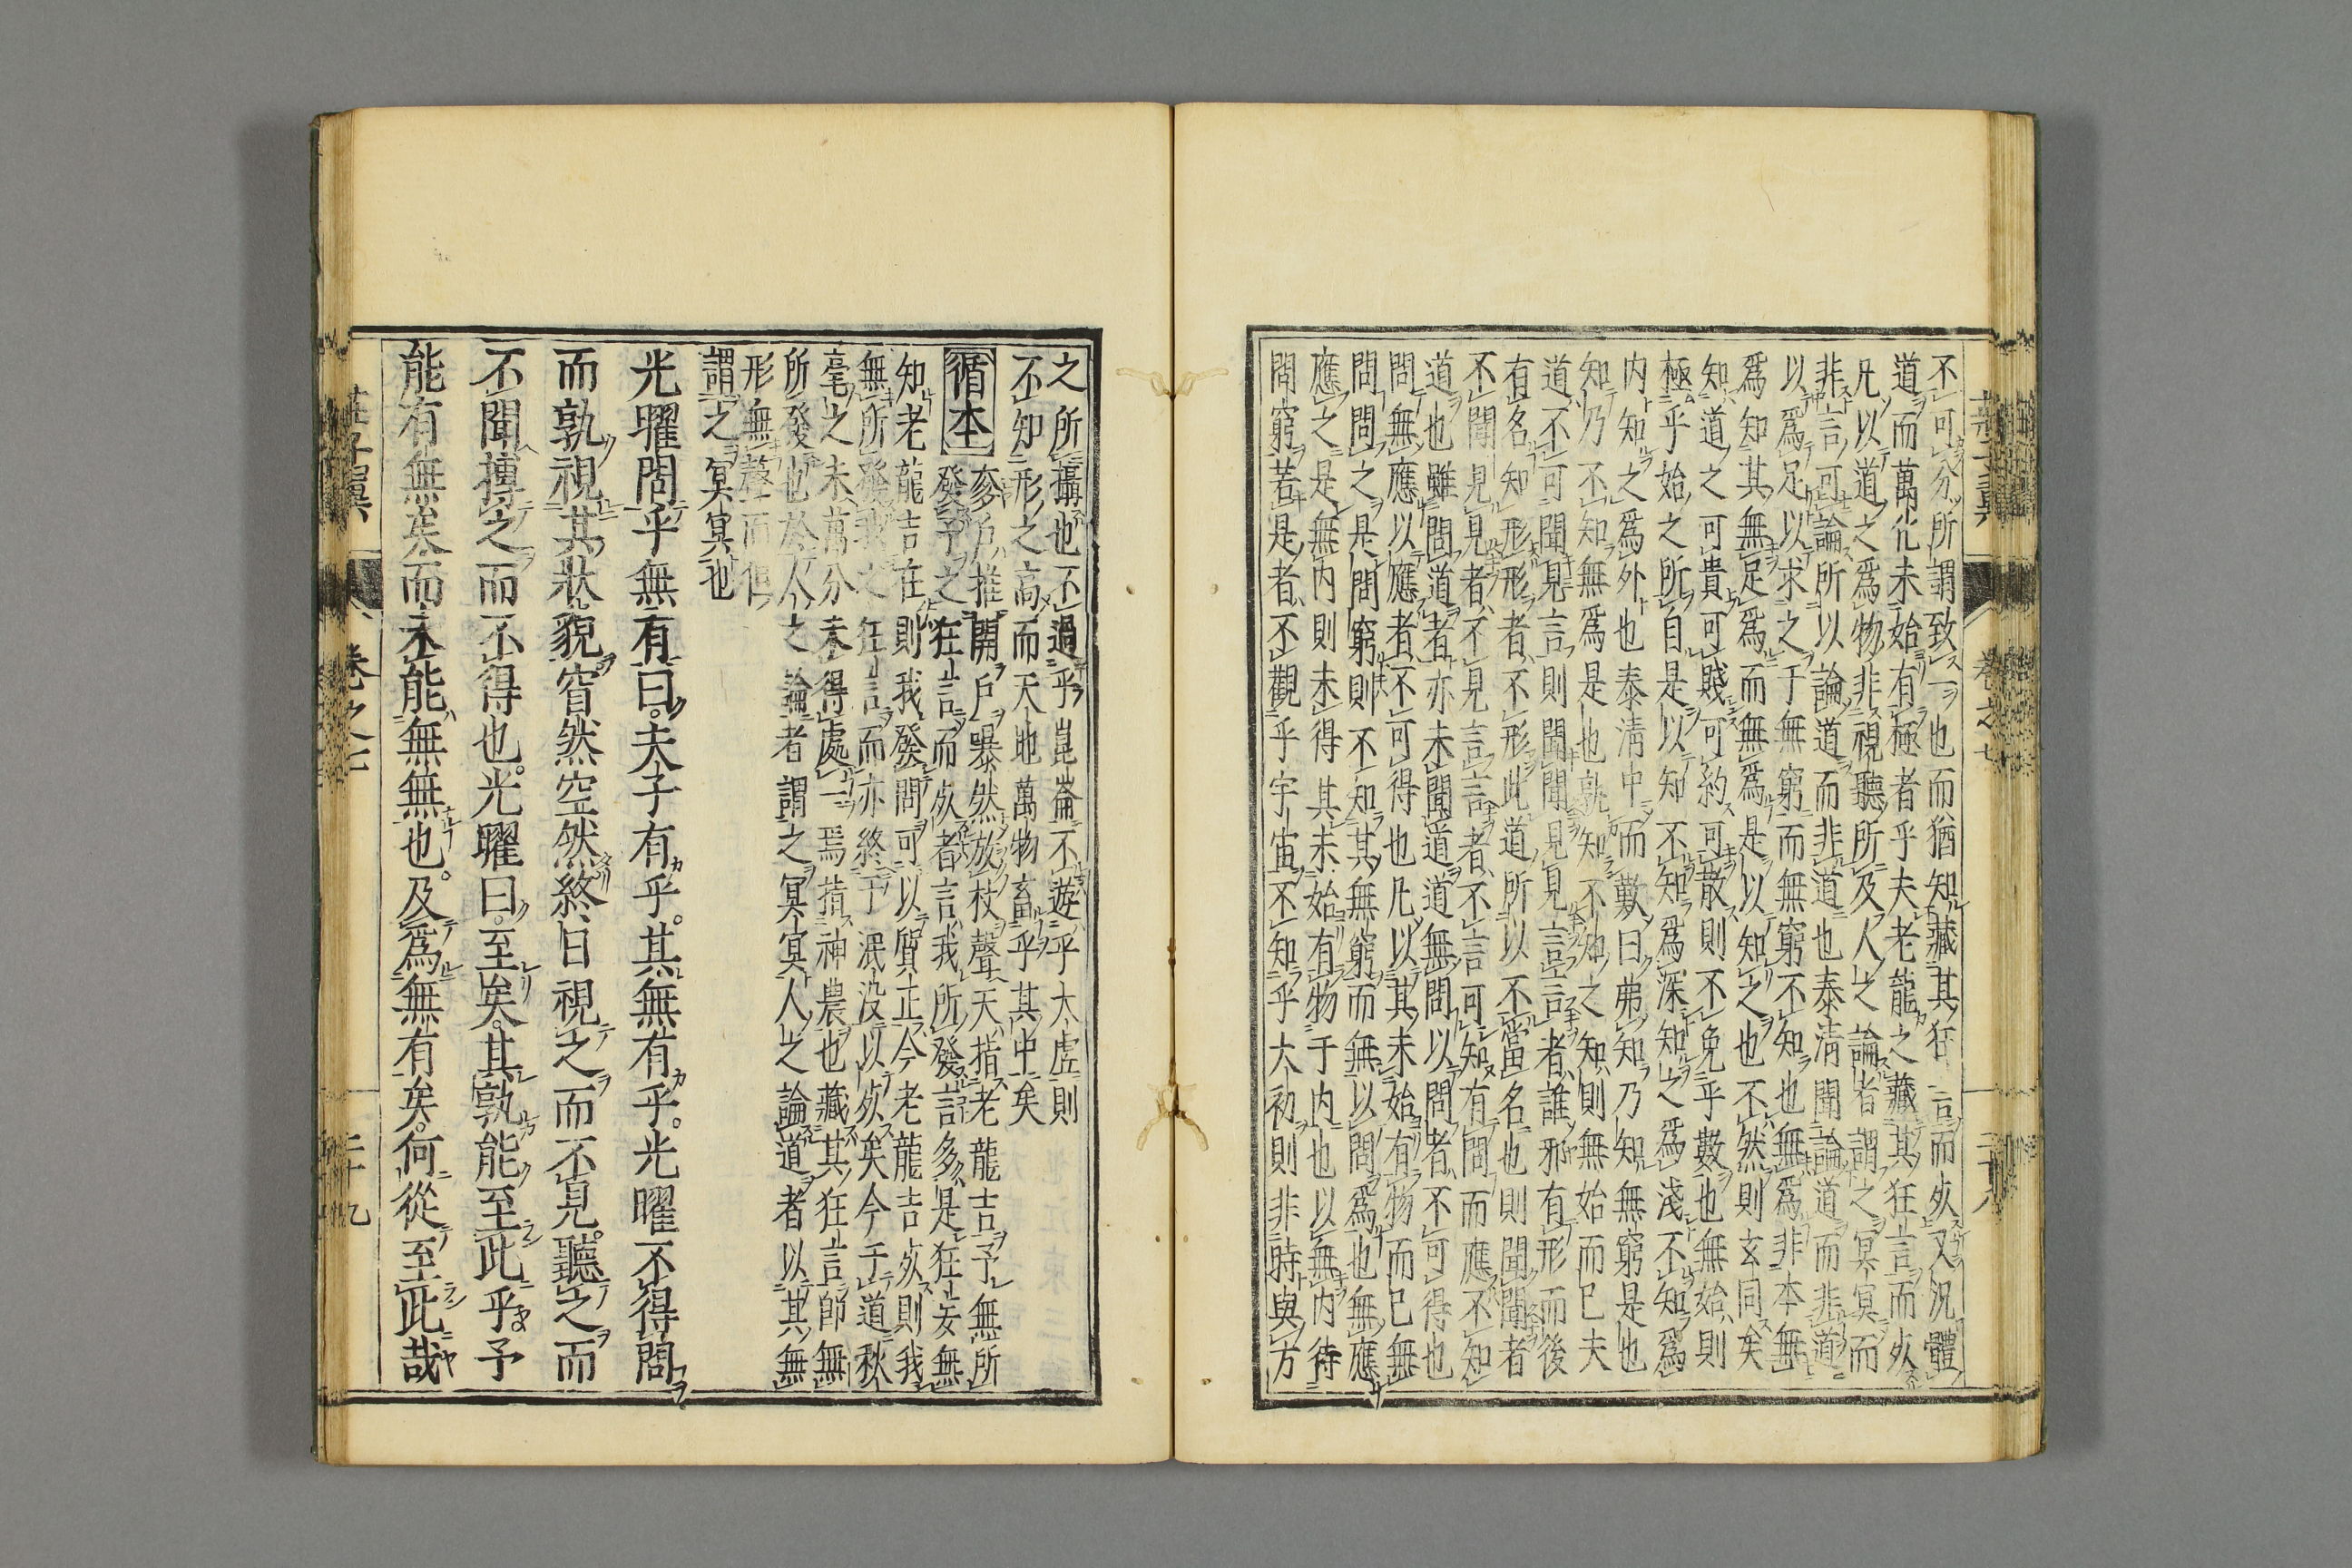 不可分所謂致一也而猶知藏其狂言而死又況體
道而萬化未始有極者乎夫老龍之藏其狂言而死
凡以道之爲物非視聽所及人之論者謂之冥冥而
非言可論所以論道而非道也泰淸聞論道而非道
以爲足以求之于無窮而無窮不知也無爲非本無
爲知其無足爲而無爲是以知之也不然則玄同矣
知道之可貴可賤可約可散則不免乎數也無始則
極乎始之所自是以知不知爲深知之爲淺不知爲
内知之爲外也泰淸中而歎曰弗知乃知無窮是也
知乃不知無爲是也孰知不知之知則無始而已夫
道不可聞見言則聞聞見見言言者誰邪有形而後
有名知形形者不形此道所以不當名也則聞聞者
不聞見見者不見言言者不言可知有問而應不知
道也雖問道者亦未聞道道無問以問者不可得也
問無應以應者不可得也凡以其未始有物而已無
問問之是問窮則不知其無窮而無以問爲也無應
應之是無内則未得其未始有物于内也以無内待
問窮若是者不觀乎宇宙不知乎大初則非時與方
之所攝也不過乎崑崙不遊乎太虛則
不知形之高而天地萬物畜乎其中矣
循本
奓戶推開戶曝然放杖聲天指老龍吉予無所
發予之狂言而死者言我所發言多是狂妄無
知老龍吉在則我發問可以質正今老龍吉死則我
無所發我之狂言而亦終于泯没以死矣今于道秋
毫之未萬分未得處一焉指神農也藏其狂言卽無
所發也於人之論者謂之冥冥人之論道者以其無
形無聲而但
謂之冥冥也
光曜問乎無有曰夫子有乎其無有乎光曜不得問
而孰視其狀貌窅然空然終日視之而不見聽之而
不聞摶之而不得也光曜曰至矣其孰能至此乎予
能有無矣而未能無無也及爲無有矣何從至此哉
莊子翼 卷之七 二十九